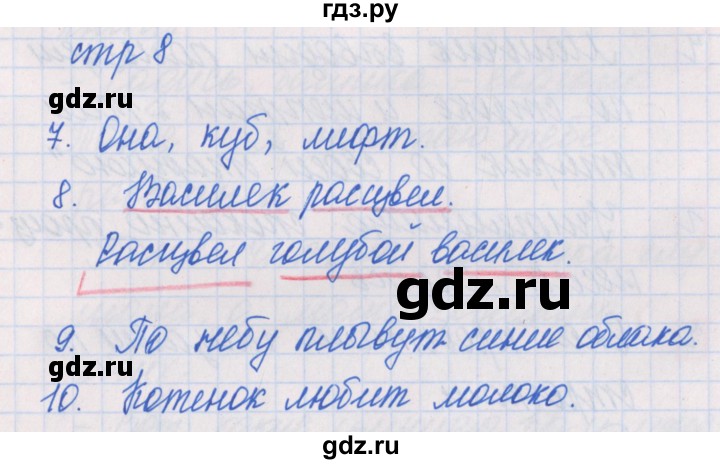 гдз.ру
стр 8
gdz.ru
7. Она, куб, лифт.
8. Василек расцвел.
gdz.ru
Расцвел голубой василек.
gdz.ru
9. По небу плывут синие облака.
gdz.ru
10. Котенок любит молоко.
gdz.ru